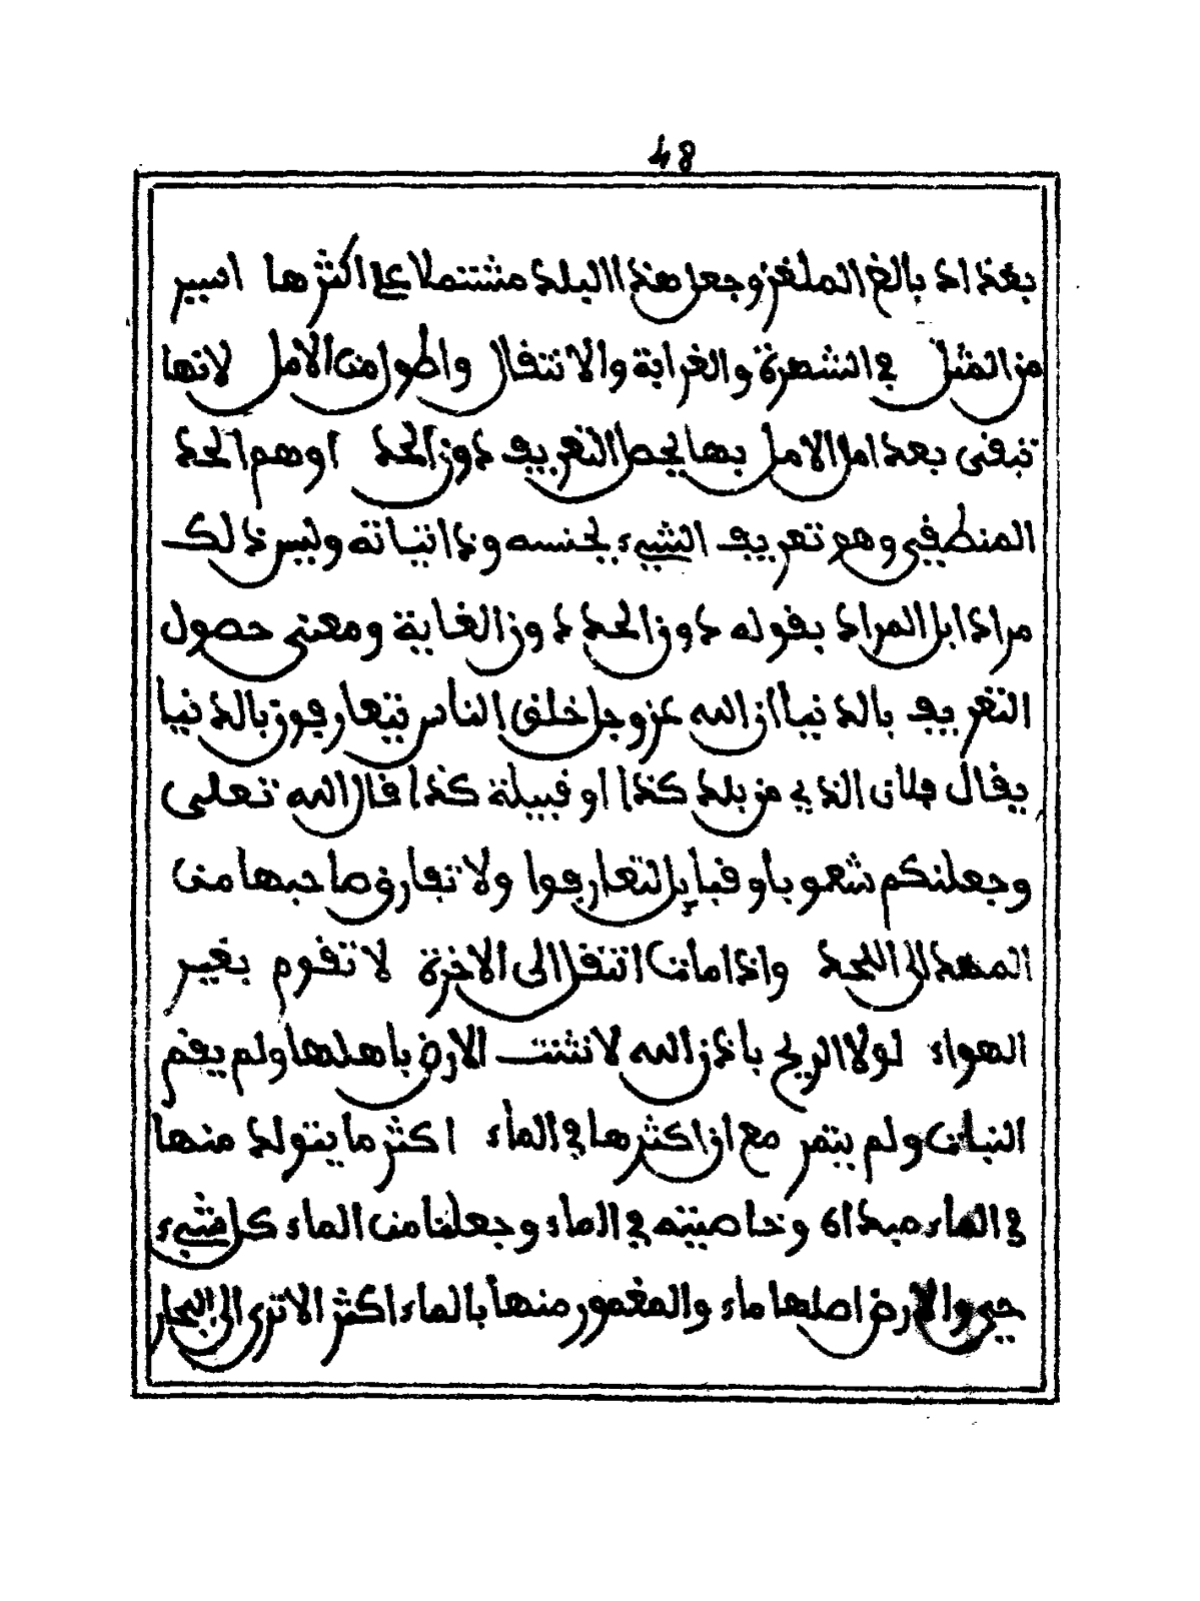 48
بغداد بالغ الملغز وجعل هذا البلد مشتملا على اكثرها اسير
من المثل في الشهرة والغرابة والانتقال واطول من الامل لانها
تبقى بعد امل الامل بها يحصل التعريف دون الحد اوهم الحد
المنطقي وهو تعريف الشيء بجنسه وذاتياته وليس ذلك
مرادا بل المراد بقوله دون الحد دون الغاية ومعنى حصول
التعريف بالدنيا ان الله عز وجل خلق الناس يتعارفون بالدنيا
يقال فلان الذي من بلد كذا او قبيلة كذا قال الله تعلى
وجعلنكم شعوبا وقبايل لتعارفوا ولا تفارق صاحبها من
المهد الى اللحد واذا مات انتقل الى الاخرة لا تقوم بغير
الهواء لولا الريح باذن الله لانتنت الارض باهلها ولم يقم
النبات ولم يثمر مع ان اكثرها في الماء اكثر ما يتولد منها
في الماء مبداه وخاصيته في الماء وجعلنا من الماء كل شيء
حي والارض اصلها ماء والمغمور منها بالماء اكثر الا ترى الى البحار